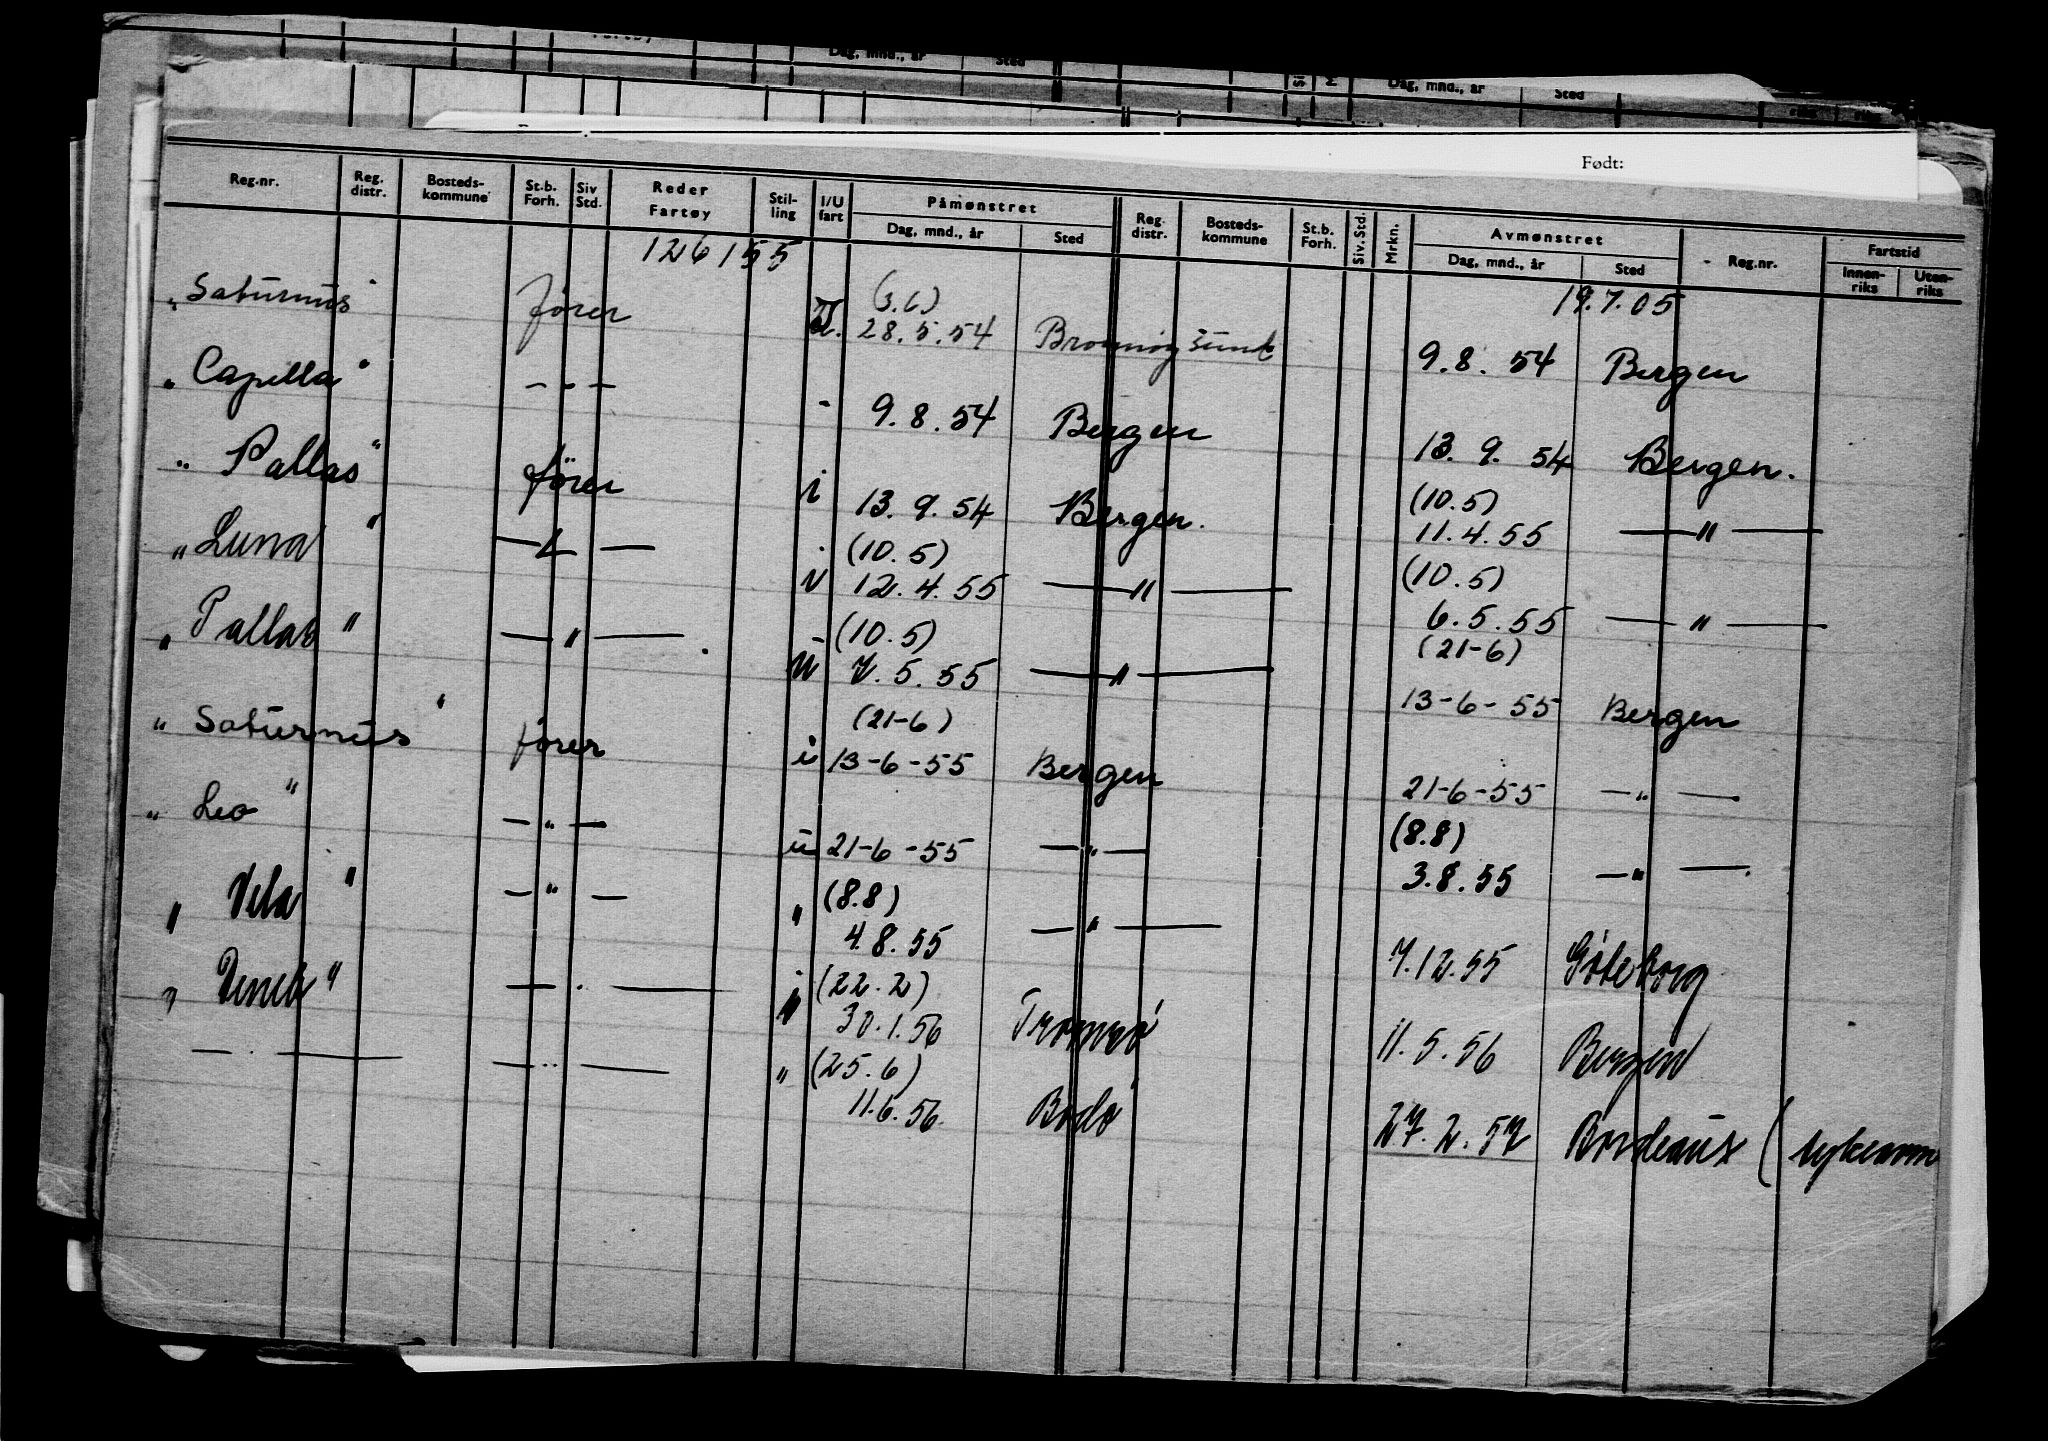 Dag, mnd., år Sted Dag, mnd., år Sted
Født:
Reg.nr. Reg. distr. Bosteds-kommune St.b. Forh. Siv Std. Reder Fartøy Stil-ling I/U fart Påmønstret Dag, mnd., år Sted Reg. distr. Bosteds-kommune St.b. Forh. Siv. Std. Mrkn. Avmønstret Dag, mnd., år Sted Reg.nr. Fartstid Innen-riks Uten-riks
126155 19.7.05
(3.6)
"Saturnus" fører U. 28.5.54 Brønnøysund 9.8.54 Bergen
"Capella" -"- - 9.8.54 Bergen 13.9.54 Bergen.
"Pallas" fører i 13.9.54 Bergen. (10.5) 11.4.55 -"-
"Luna" -"- (10.5) 12.4.55 -"- (10.5) 6.5.55 -"-
"Pallas" -"- (10.5) 7.5.55 -"- (21-6) 13-6-55 Bergen
"Saturnus" fører (21-6) 13-6-55 Bergen 21-6-55 -"-
"Leo" -"- u 21-6-55 -"- (8.8) 3.8.55 -"-.
"Vela" -"- " (8.8) 4.8.55 -"- 7.12.55 Göteborg
"Venus" -"- (22.2) 30.1.56 Tromsø 11.5.56 Bergen
-"- -"- " (25.6) 11.6.56 Bodø 27.2.57 Bordeaux (sykdom